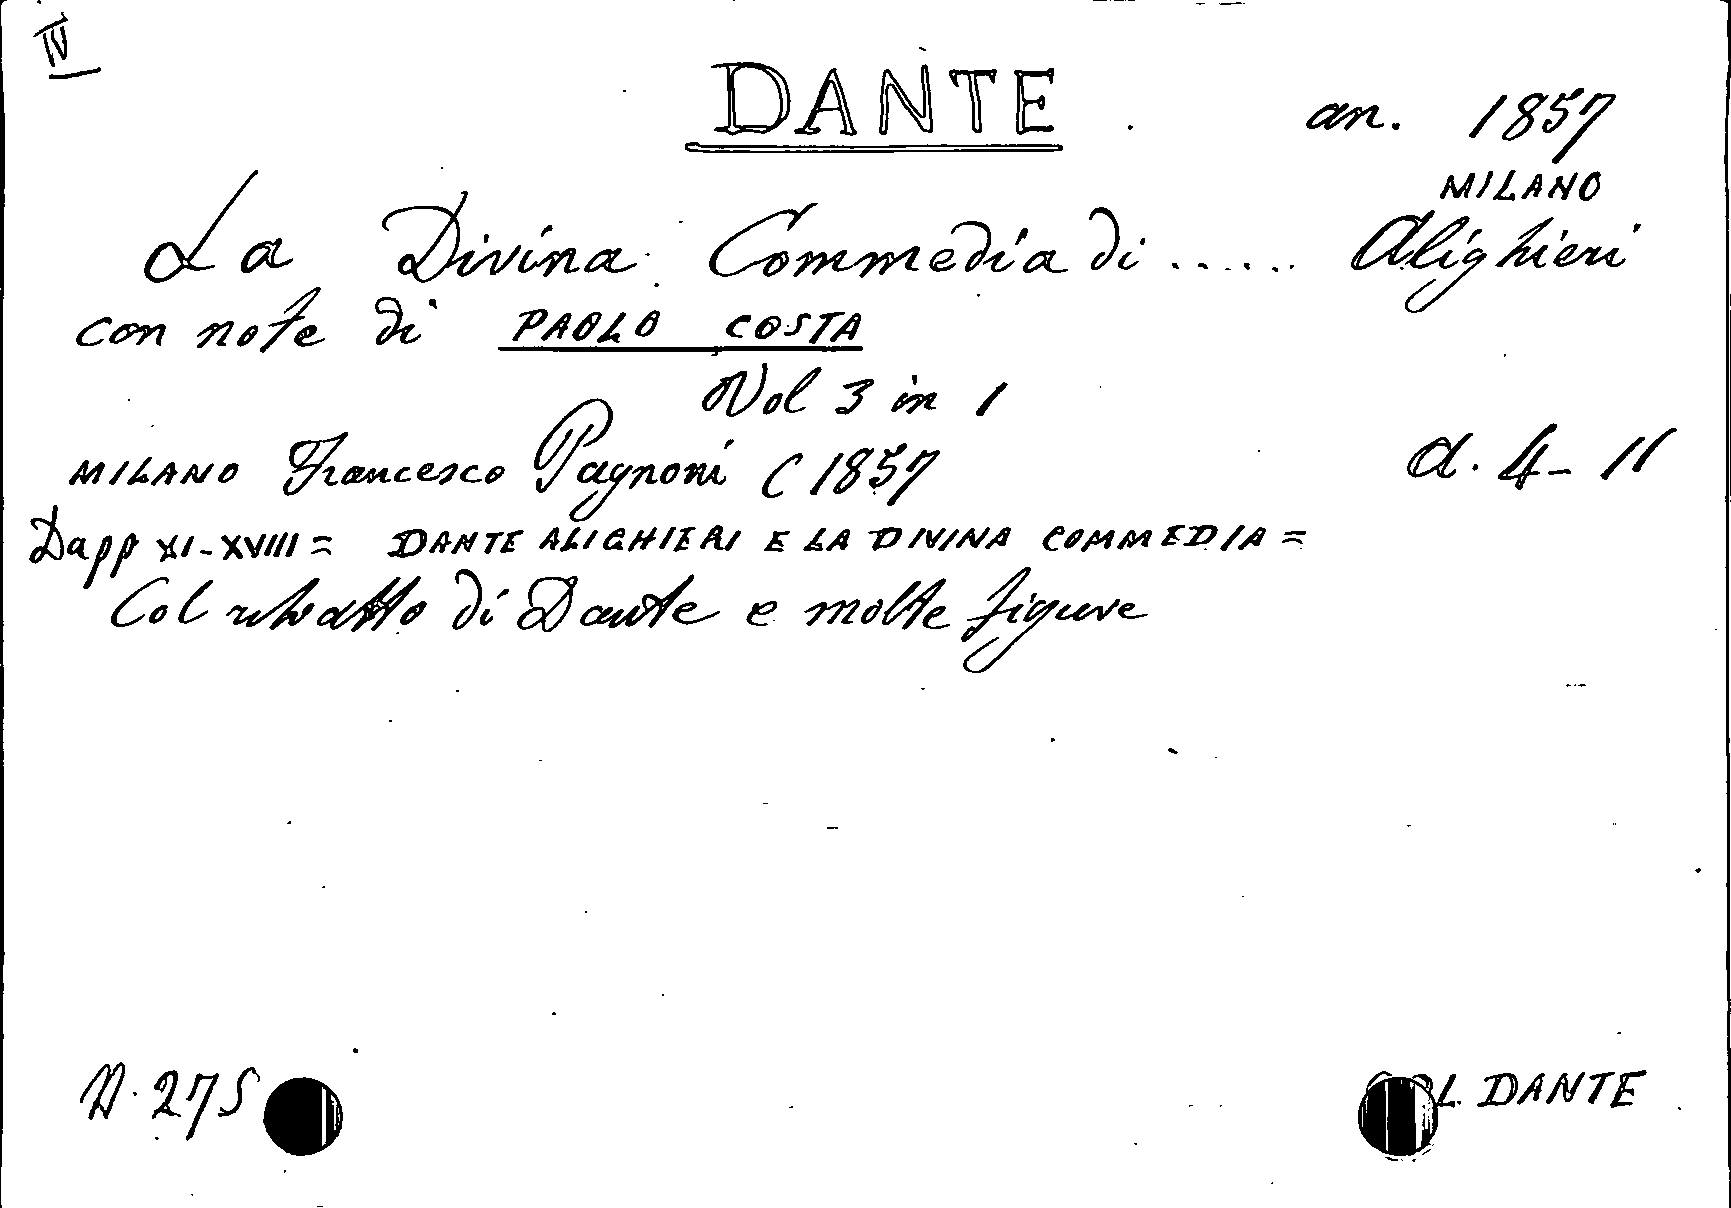 IV
DANTE
an. 1857
MILANO
La Divina Commedia di ...... Alighieri
con note di PAOLO COSTA
Vol 3 in 1
MILANO Francesco Pagnoni C 1857
d. 4-11
Dapp XI-XVIII = DANTE ALIGHIERI E LA DIVINA COMMEDIA =
Col ritratto di Dante e molte figure
N. 275
DANTE